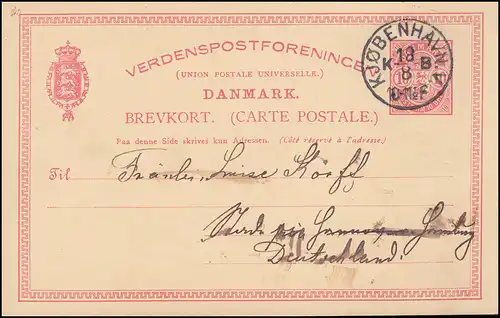 VERDENSPOSTFORENINGEN
(UNION POSTALE UNIVERSELLE.)
DANMARK.
BREVKORT. (CARTE POSTALE.)
Paa denne Side skrives kun Adressen. (Côté réservé à l'adresse.)
KJØBENHAVN.K
18
K B
8
10-11F
Til
Fräulein Luise Korff
Stade
Hamburg
Deutschland.